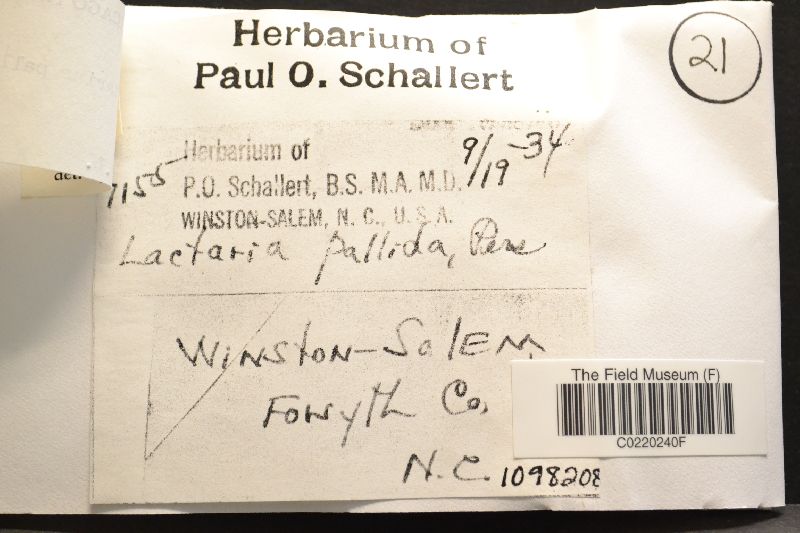 Herbarium of
Paul O. Schallert
21
Herbarium of
9/19-34
7155
P.O. Schallert, B.S. M.A. M.D.
WINSTON-SALEM, N. C., U. S. A.
Lactaria pallida, Pers
Winston-Salem
Forsyth Co.
N.C.
1098208
The Field Museum (F)
C0220240F